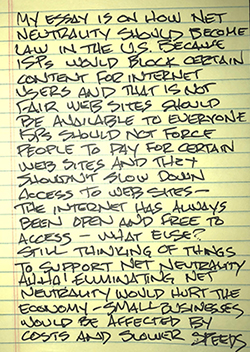 MY ESSAY IS ON HOW NET
NEUTRALITY SHOULD BECOME
LAW IN THE U.S. BECAUSE
ISPS WOULD BLOCK CERTAIN
CONTENT FOR INTERNET
USERS AND THAT IS NOT
FAIR WEB SITES SHOULD
BE AVAILABLE TO EVERYONE
ISPS SHOULD NOT FORCE
PEOPLE TO PAY FOR CERTAIN
WEB SITES AND THEY
SHOULDN'T SLOW DOWN
ACCESS TO WEB SITES—
THE INTERNET HAS ALWAYS
BEEN OPEN AND FREE TO
ACCESS – WHAT ELSE?
STILL THINKING OF THINGS
TO SUPPORT NET NEUTRALITY
AHHA! ELIMINATING NET
NEUTRALITY WOULD HURT THE
ECONOMY – SMALL BUSINESSES
WOULD BE AFFECTED BY
COSTS AND SLOWER SPEEDS